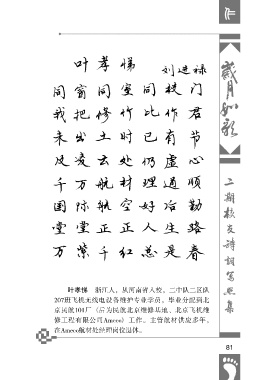 叶孝悌
刘进禄
同窗同室同校门
我把修竹比作君
未出土时已有节
及凌云处仍虚心
千万航材理通顺
国际航空好冶勤
堂堂正正人生路
万紫千红总是春
叶孝悌 浙江人，从河南省入校。二中队二区队
207班飞机无线电设备维护专业学员。毕业分配到北
京民航101厂（后为民航北京维修基地、北京飞机维
修工程有限公司Ameco）工作，主管航材供应多年。
在Ameco航材处经理岗位退休。
歲月如歌
二期校友詩詞寫照集
81